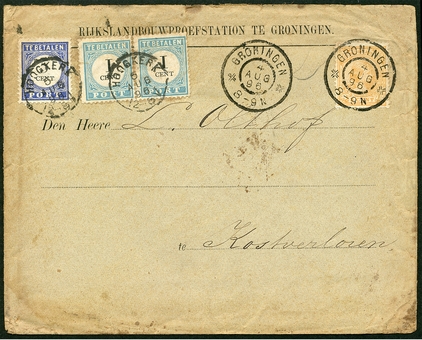 RIJKSLANDBOUWPROEFSTATION TE GRONINGEN.
TE BETALEN TE BETALEN TE BETALEN
CENT 1 CENT 1 CENT
PORT PORT PORT
HOOGKERK
HOOGKERK
GRONINGEN
4
AUG
96
8-9N
GRONINGEN
4
AUG
96
8-9N
Den Heere L. Olthof
te Kostverloren